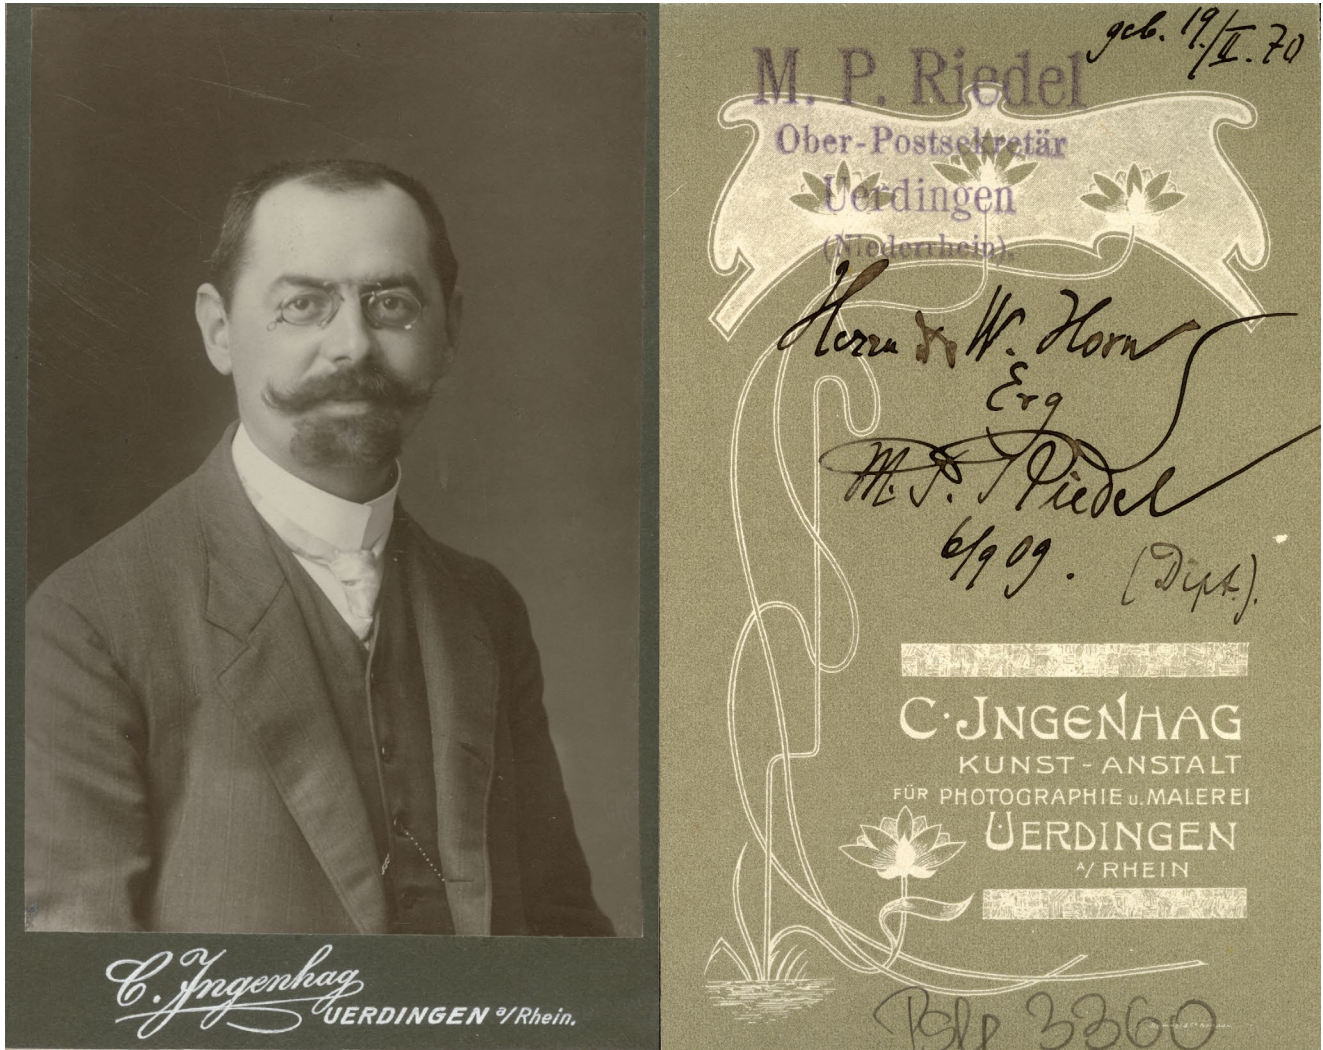 C. Jngenhag
UERDINGEN a/Rhein.
geb. 19/II. 70
M. P. Riedel
Ober-Postsekretär
Uerdingen
(Niederrhein).
Herrn Dr W. Horn
Erg
M. P. Riedel
6/9 09.
(Dipt.).
C. JNGENHAG
KUNST-ANSTALT
FÜR PHOTOGRAPHIE u. MALEREI
UERDINGEN
A/ RHEIN
3360